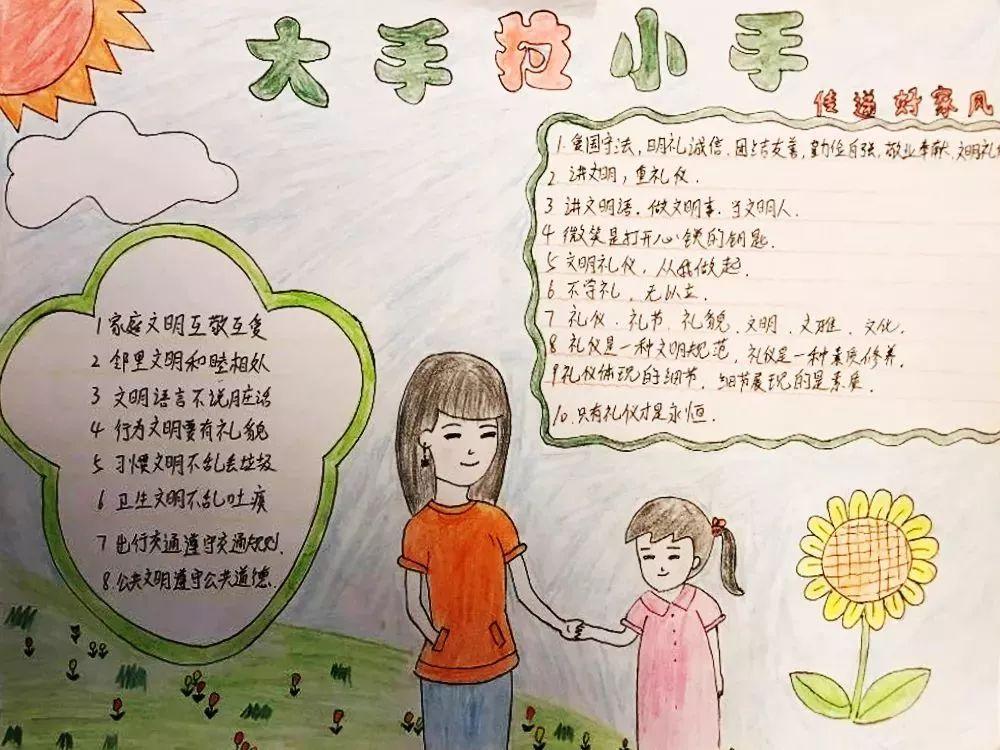 大手拉小手
传递好家风
1. 爱国守法，明礼诚信．团结友善，勤俭自强，敬业奉献．文明礼
2. 讲文明，重礼仪．
3 讲文明语．做文明事．当文明人．
4 微笑是打开心锁的钥匙．
5 文明礼仪，从我做起．
6 不学礼，无以立．
7 礼仪．礼节．礼貌．文明．文雅．文化．
8 礼仪是一种文明规范，礼仪是一种素质修养．
9 礼仪体现的细节，细节展现的是素质．
10. 只有礼仪才是永恒．
1 家庭文明互敬互爱
2 邻里文明和睦相处
3 文明语言不说脏话
4 行为文明要有礼貌
5 习惯文明不乱丢垃圾
6 卫生文明不乱吐痰
7 出行交通遵守交通规则．
8. 公共文明遵守公共道德．